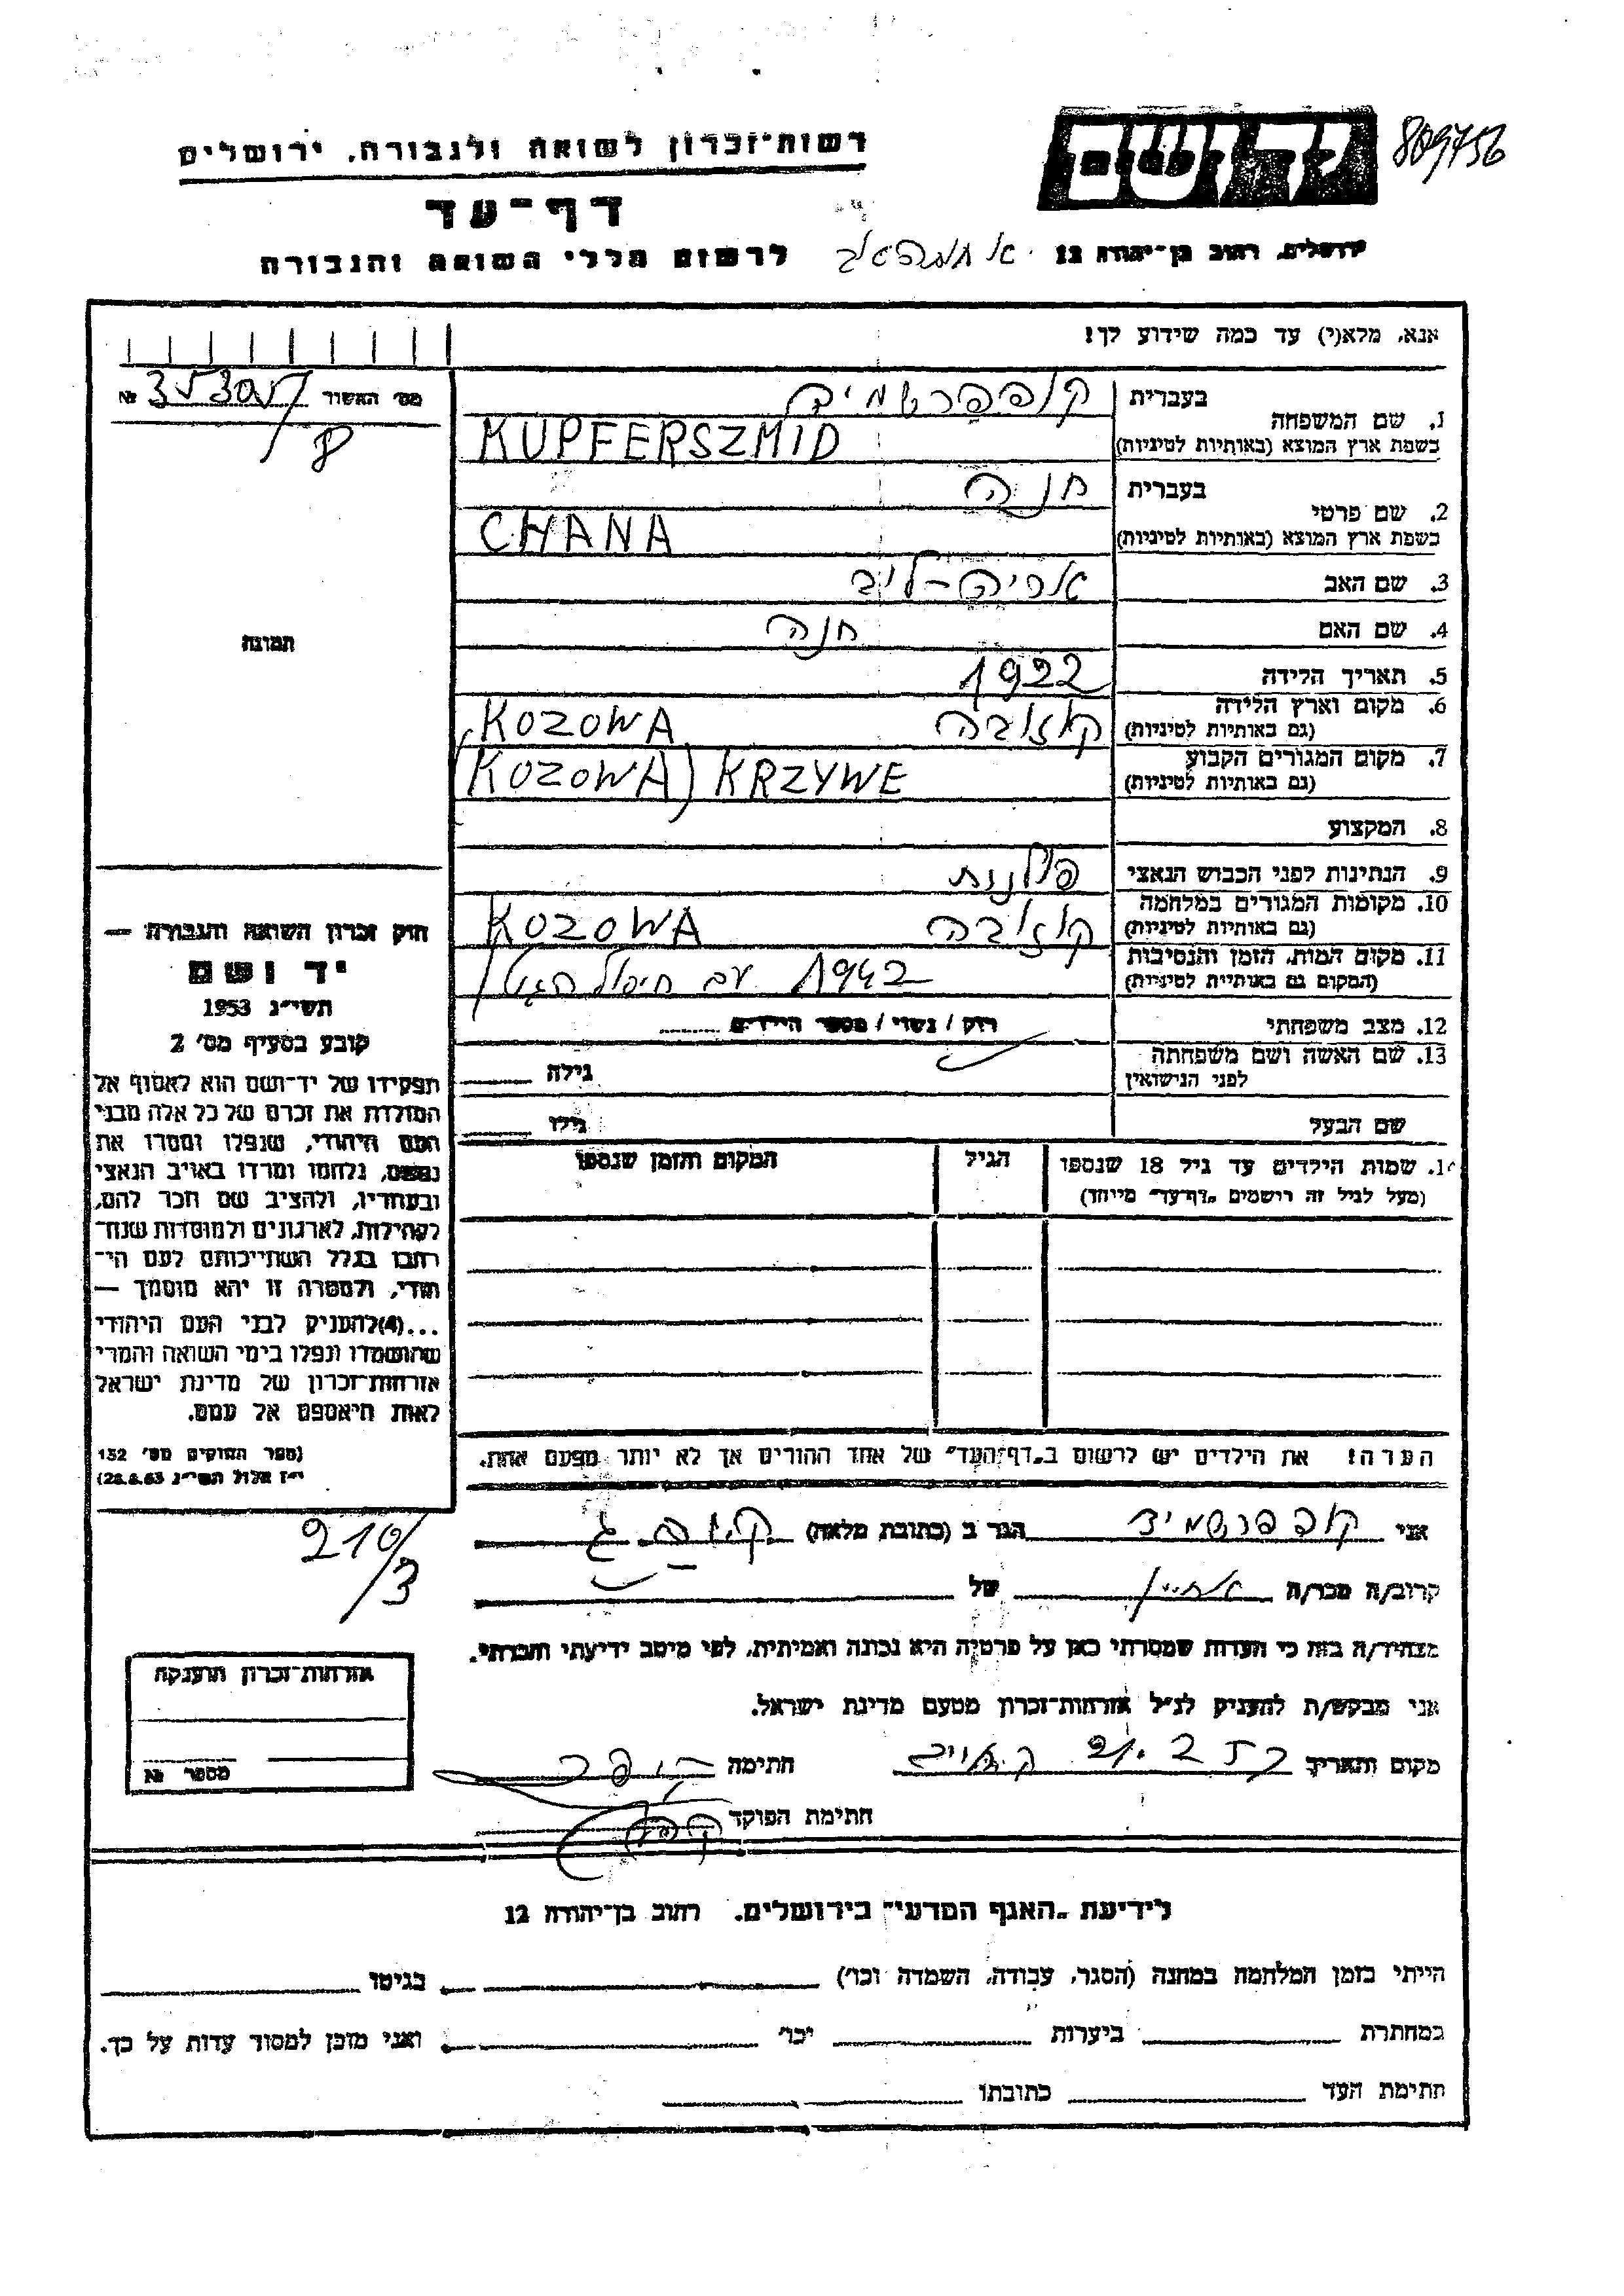 יד ושם
809756
רשות־זכרון לשואה ולגבורה, ירושלים
דף־עד
לרשום חללי השואה והגבורה
ירושלים, רחוב בן־יהודה 12
אנא, מלא(י) עד כמה שידוע לך!
בעברית קופפרשמיד
1. שם המשפחה
בשפת ארץ המוצא (באותיות לטיניות) KUPFERSZMID
בעברית חנה
2. שם פרטי
בשפת ארץ המוצא (באותיות לטיניות) CHANA
3. שם האב אריה-לייב
4. שם האם חנה
5. תאריך הלידה 1922
6. מקום וארץ הלידה קוזובה KOZOWA
(גם באותיות לטיניות)
7. מקום המגורים הקבוע (KOZOWA) KRZYWE
(גם באותיות לטיניות)
8. המקצוע
9. הנתינות לפני הכבוש הנאצי פולנית
10. מקומות המגורים במלחמה קוזובה KOZOWA
(גם באותיות לטיניות)
11. מקום המות, הזמן והנסיבות 1942 עם חיסול הגטו
(המקום גם באותיית לטיניות)
12. מצב משפחתי רוק / נשוי / מספר הילדים
13. שם האשה ושם משפחתה
לפני הנישואין גילה
שם הבעל גילו
1. שמות הילדים עד גיל 18 שנספו הגיל המקום והזמן שנספו
(מעל לגיל זה רושמים „דף־עד״ מייחד)
הערה! את הילדים יש לרשום ב„דף־העד״ של אחד ההורים אך לא יותר מפעם אחת.
מס' האשור № 35305
8
תמונה
חוק זכרון השואה והגבורה —
יד ושם
תשי״ג 1953
קובע בסעיף מס' 2
תפקידו של יד־ושם הוא לאסוף אל
המולדת את זכרם של כל אלה מבני
העם היהודי, שנפלו ומסרו את
נפשם, נלחמו ומרדו באויב הנאצי
ובעוזריו, ולהציב שם וזכר להם,
לקהילות, לארגונים ולמוסדות שנח־
רבו בגלל השתייכותם לעם הי־
הודי, ולמטרה זו יהא מוסמך —
...(4)להעניק לבני העם היהודי
שהושמדו ונפלו בימי השואה והמרי
אזרחות־זכרון של מדינת ישראל
לאות היאספם אל עמם.
(ספר החוקים מס' 132
י״ז אלול תשי״ג 28.8.53)
210/3
אני קופפרשמיד הגר ב (כתובת מלאה)
קרוב/ה מכר/ה אחיין של
מצהיר/ה בזה כי העדות שמסרתי כאן על פרטיה היא נכונה ואמיתית, לפי מיטב ידיעתי והכרתי.
אני מבקש/ת להעניק לנ״ל אזרחות־זכרון מטעם מדינת ישראל.
מקום ותאריך חתימה
חתימת הפוקד
אזרחות־זכרון הוענקה
מספר №
לידיעת „האגף המדעי״ בירושלים. רחוב בן־יהודה 12
הייתי בזמן המלחמה במחנה (הסגר, עבודה, השמדה וכו') בגיטו
במחתרת ביערות וכו' ואני מוכן למסור עדות על כך.
חתימת העד כתובתו